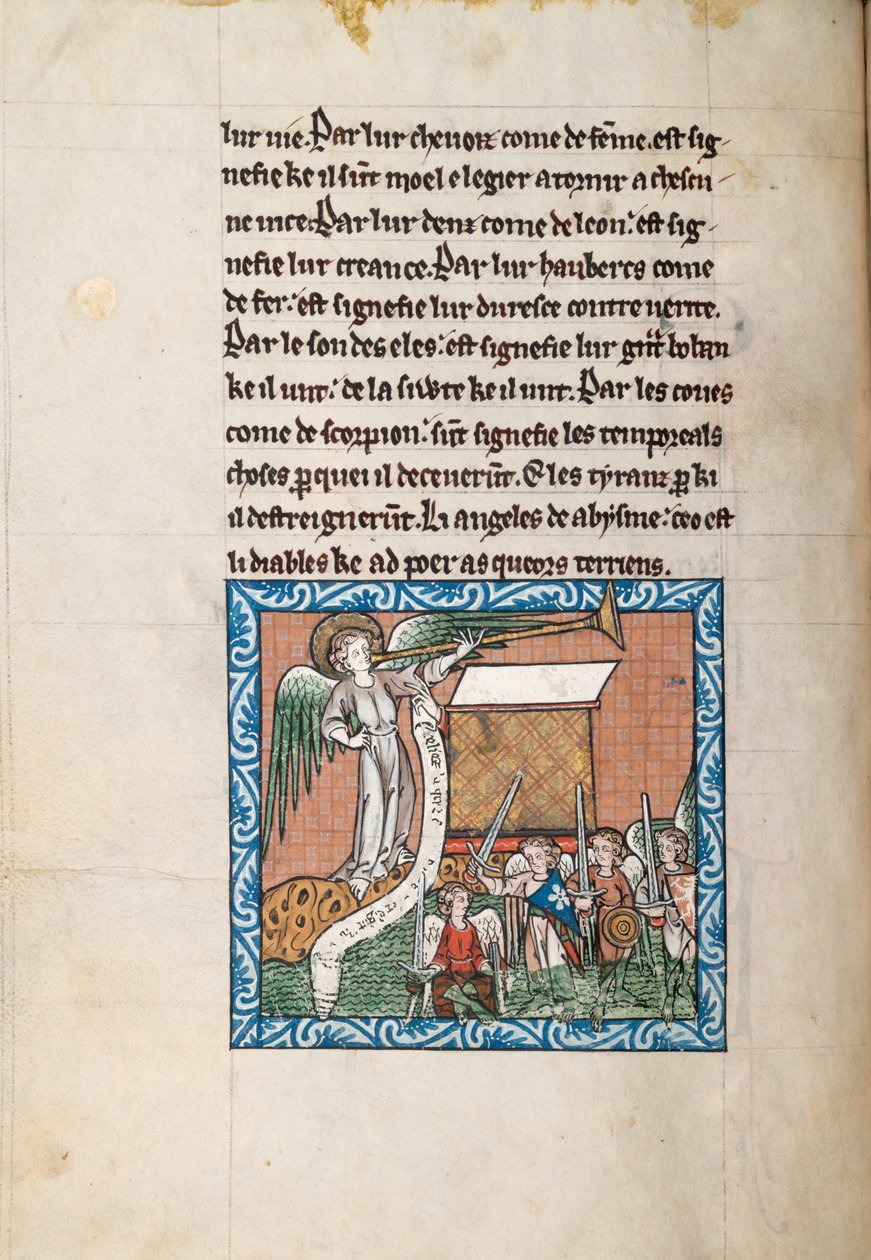 lur uie. Par lur cheuorz come de fēme. est sig-
nefie ke il sūt moel e legier a tornir a chescu-
ne uice. Par lur denz come de leon. est sig-
nefie lur creance. Par lur haubercs come
de fer. est signefie lur duresce contre uerite.
Par le son des eles. est signefie lur boban
ke il unt. de la siwte ke il unt. Par les coues
come de scorpion. sūt signefie les temporeals
choses ꝑ quei il deceuerūt. E les tyranz ꝑ ki
il destreignerūt. Li angeles de abysme. ceo est
li diables ke ad poer as queors terriens.